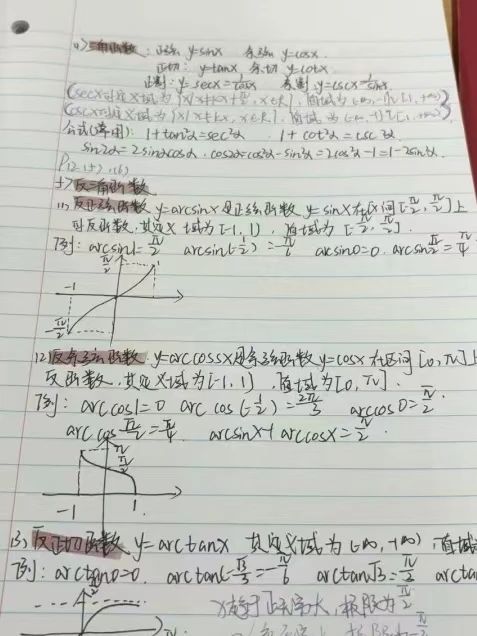 (1) 三角函数：正弦 y=sinx 余弦 y=cosx.
正切：y=tanx 余切 y=cotx
正割：y=secx= 余割：y=cscx
(secx对定义域为{x|x≠kπ+π/2, x∈R}, 值域为(-∞,-1]∪[1,+∞))
(cscx对定义域为{x|x≠kπ, x∈R}, 值域为(-∞,-1]∪[1,+∞))
公式(常用): 1+tan²α=sec²α. 1+cot²α=csc²α
sin2α=2sinαcosα. cos2α=cos²α-sin²α=2cos²α-1=1-2sin²α.
反三角函数
(1) 反正弦函数 y=arcsinx是正弦函数 y=sinx在区间[-π/2, π/2]上
反函数, 其定义域为[-1,1), 值域为[-π/2, π/2].
例: arcsin1=π/2 arcsin(-1/2)=-π/6 arcsin0=0. arcsin√2/2=π/4
π/2
-1
-π/2
(2) 反余弦函数. y=arccosx是余弦函数 y=cosx在区间[0,π]上
反函数, 其定义域为[-1,1), 值域为[0,π].
例: arccos1=0 arccos(-1/2)=2π/3 arccos0=π/2.
arccos√2/2=π/4. arcsinx+arccosx=π/2.
π
π/2
-1 1.
(3) 反正切函数 y=arctanx 其定义域为(-∞,+∞), 值域
例: arctan0=0. arctan(-√3/3=-π/6 arctan√3=π/3 arcta
π/2
x趋于正无穷大, 极限为π/2